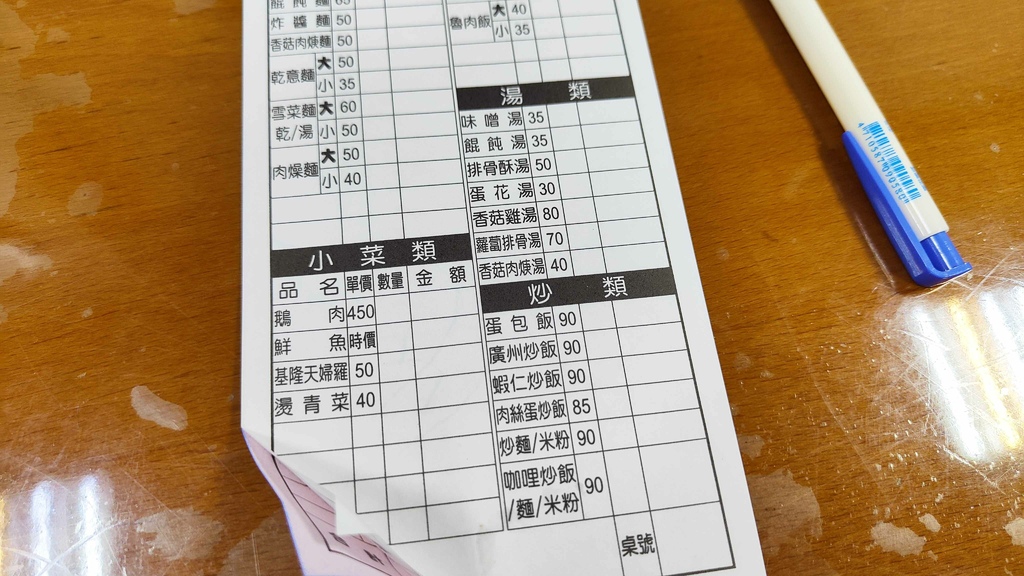 餛飩麵 65
炸醬麵 50
香菇肉焿麵 50
乾意麵 大 50
小 35
雪菜麵 大 60
乾/湯 小 50
肉燥麵 大 50
小 40
小菜類
品名 單價 數量 金額
鵝肉 450
鮮魚 時價
基隆天婦羅 50
燙青菜 40
魯肉飯 大 40
小 35
湯類
味噌湯 35
餛飩湯 35
排骨酥湯 50
蛋花湯 30
香菇雞湯 80
蘿蔔排骨湯 70
香菇肉焿湯 40
炒類
蛋包飯 90
廣州炒飯 90
蝦仁炒飯 90
肉絲蛋炒飯 85
炒麵/米粉 90
咖哩炒飯
/麵/米粉 90
桌號